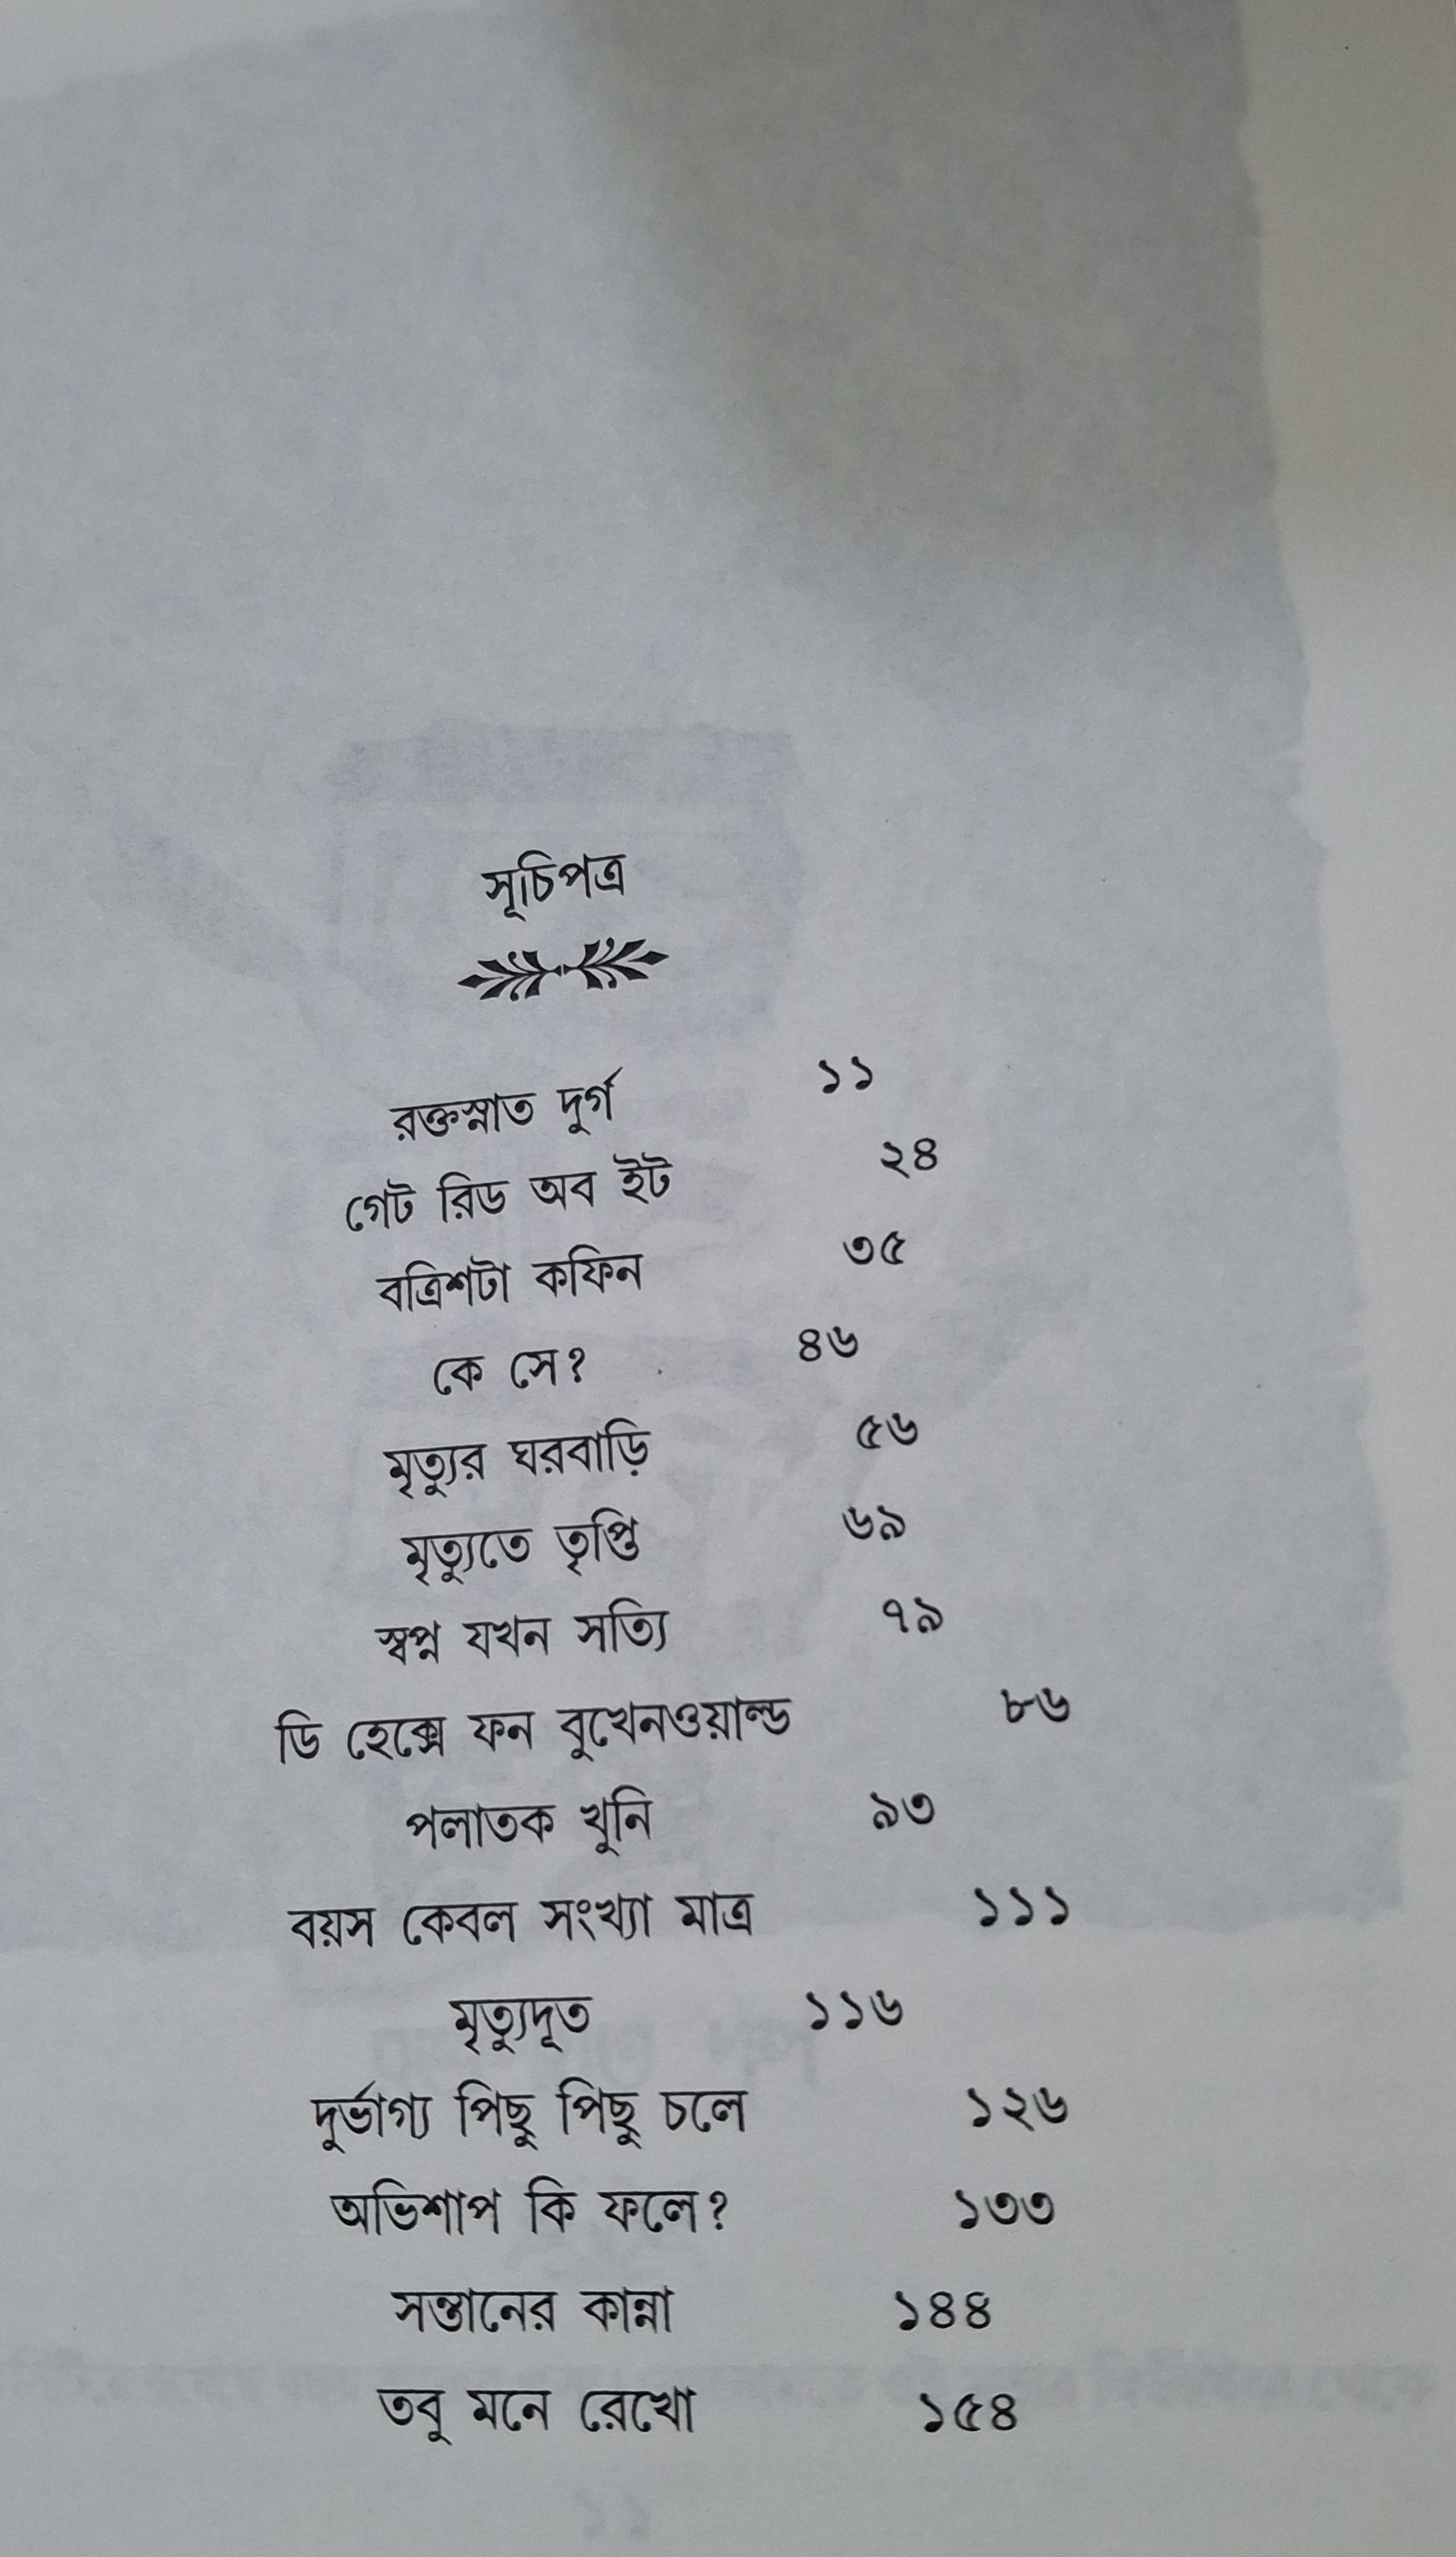 সূচিপত্র
রক্তস্নাত দুর্গ ১১
গেট রিড অব ইট ২৪
বত্রিশটা কফিন ৩৫
কে সে? ৪৬
মৃত্যুর ঘরবাড়ি ৫৬
মৃত্যুতে তৃপ্তি ৬৯
স্বপ্ন যখন সত্যি ৭৯
ডি হেক্সে ফন বুখেনওয়াল্ড ৮৬
পলাতক খুনি ৯৩
বয়স কেবল সংখ্যা মাত্র ১১১
মৃত্যুদূত ১১৬
দুর্ভাগ্য পিছু পিছু চলে ১২৬
অভিশাপ কি ফলে? ১৩৩
সন্তানের কান্না ১৪৪
তবু মনে রেখো ১৫৪